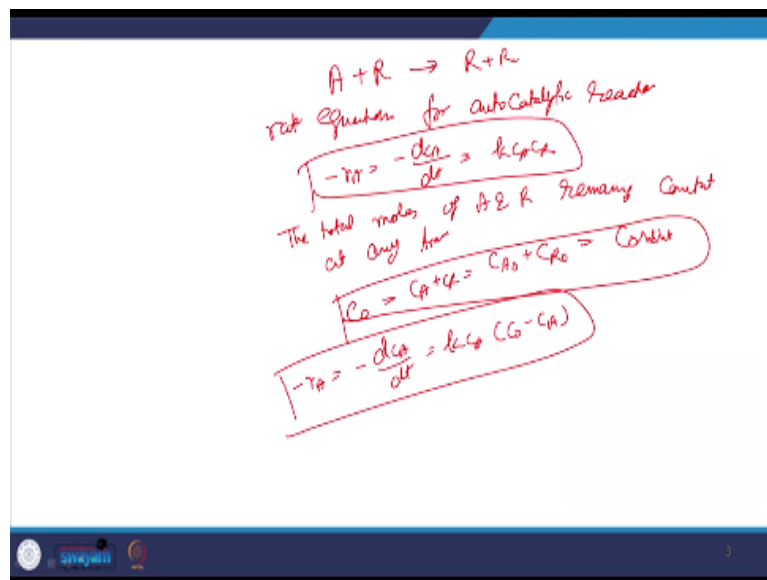 A + R → R + R
rate equation for autocatalytic reaction
-rA = -dCA/dt = kCACR
The total moles of A & R remaining Constant
at any time
C0 = CA + CR = CA0 + CR0 = Constant
-rA = -dCA/dt = kCA (C0 - CA)
swayam
3